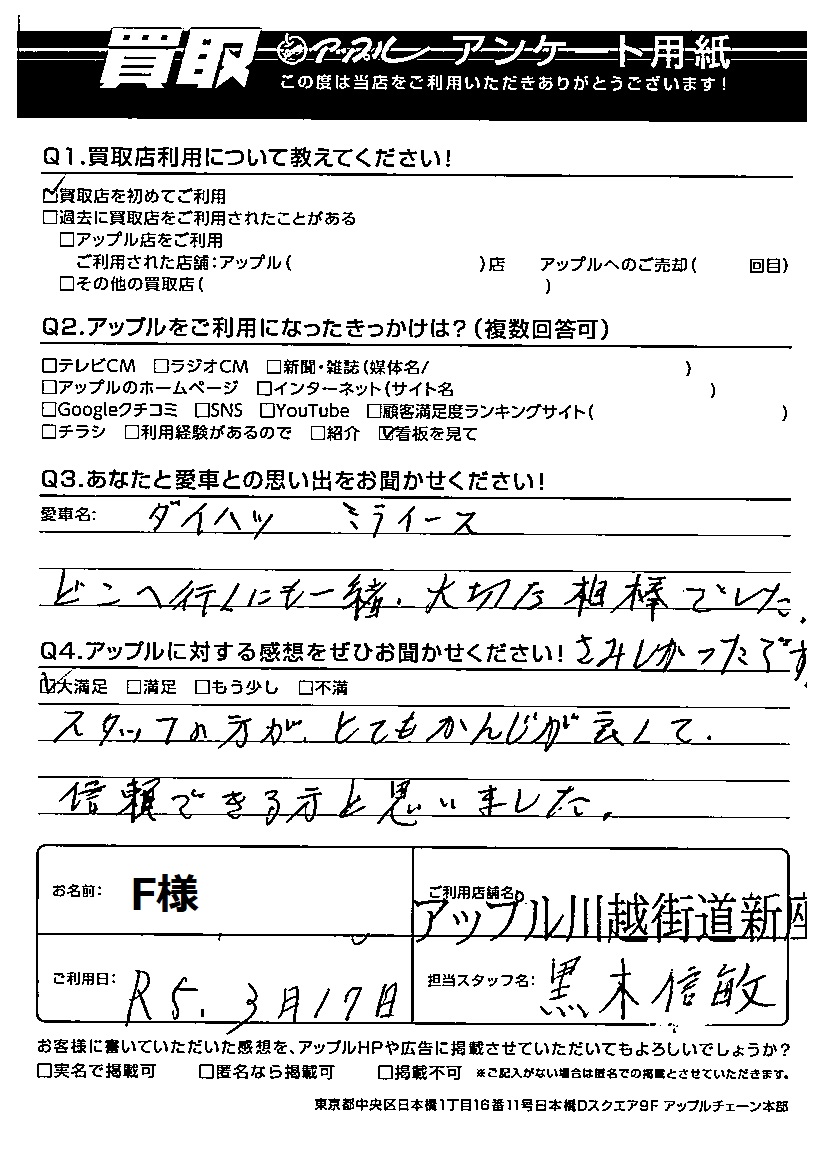 買取 アップル アンケート用紙
この度は当店をご利用いただきありがとうございます!
Q1.買取店利用について教えてください!
☑買取店を初めてご利用
□過去に買取店をご利用されたことがある
□アップル店をご利用
ご利用された店舗:アップル( )店 アップルへのご売却( 回目)
□その他の買取店( )
Q2.アップルをご利用になったきっかけは?(複数回答可)
□テレビCM □ラジオCM □新聞・雑誌(媒体名/ )
□アップルのホームページ □インターネット(サイト名 )
□Googleクチコミ □SNS □YouTube □顧客満足度ランキングサイト( )
□チラシ □利用経験があるので □紹介 ☑看板を見て
Q3.あなたと愛車との思い出をお聞かせください!
愛車名: ダイハツ ミライース
どこへ行くにも一緒、大切な相棒でした。
さみしかったです
Q4.アップルに対する感想をぜひお聞かせください!
☑大満足 □満足 □もう少し □不満
スタッフの方が、とてもかんじが良くて、
信頼できる方と思いました。
お名前: F様
ご利用店舗名
アップル川越街道新座
ご利用日: R5.3月17日
担当スタッフ名: 黒木信敏
お客様に書いていただいた感想を、アップルHPや広告に掲載させていただいてもよろしいでしょうか?
□実名で掲載可 □匿名なら掲載可 □掲載不可 ※ご記入がない場合は匿名での掲載とさせていただきます。
東京都中央区日本橋1丁目16番11号日本橋Dスクエア9F アップルチェーン本部